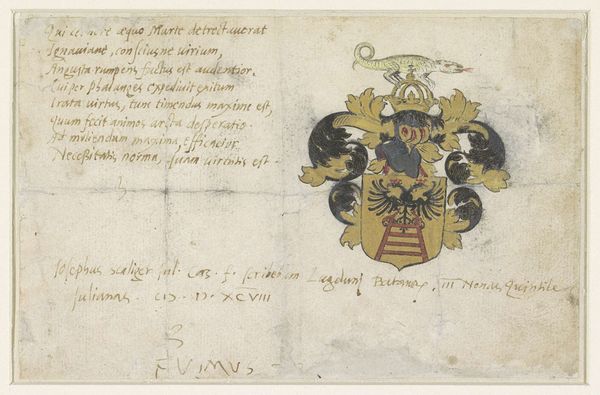 Qui cernere æquo Marte detrectaverat
Ignaviam, consciusne virium,
Angusta rumpens factus est audentior.
Cui per phalanges expedivit exitum
Irata virtus, tunc timendus maxime est,
Quum fecit animos arcta desperatio.
Ad moliendum maxima efficacior
Necessitatis norma, quam virtutis est.
Josephus Scaliger Jul. Cæs. f. scribebam Lugduni Batavor. III Nonas Quintiles
Julianas. CIƆ. IƆ. XCVIII
FVIMVS